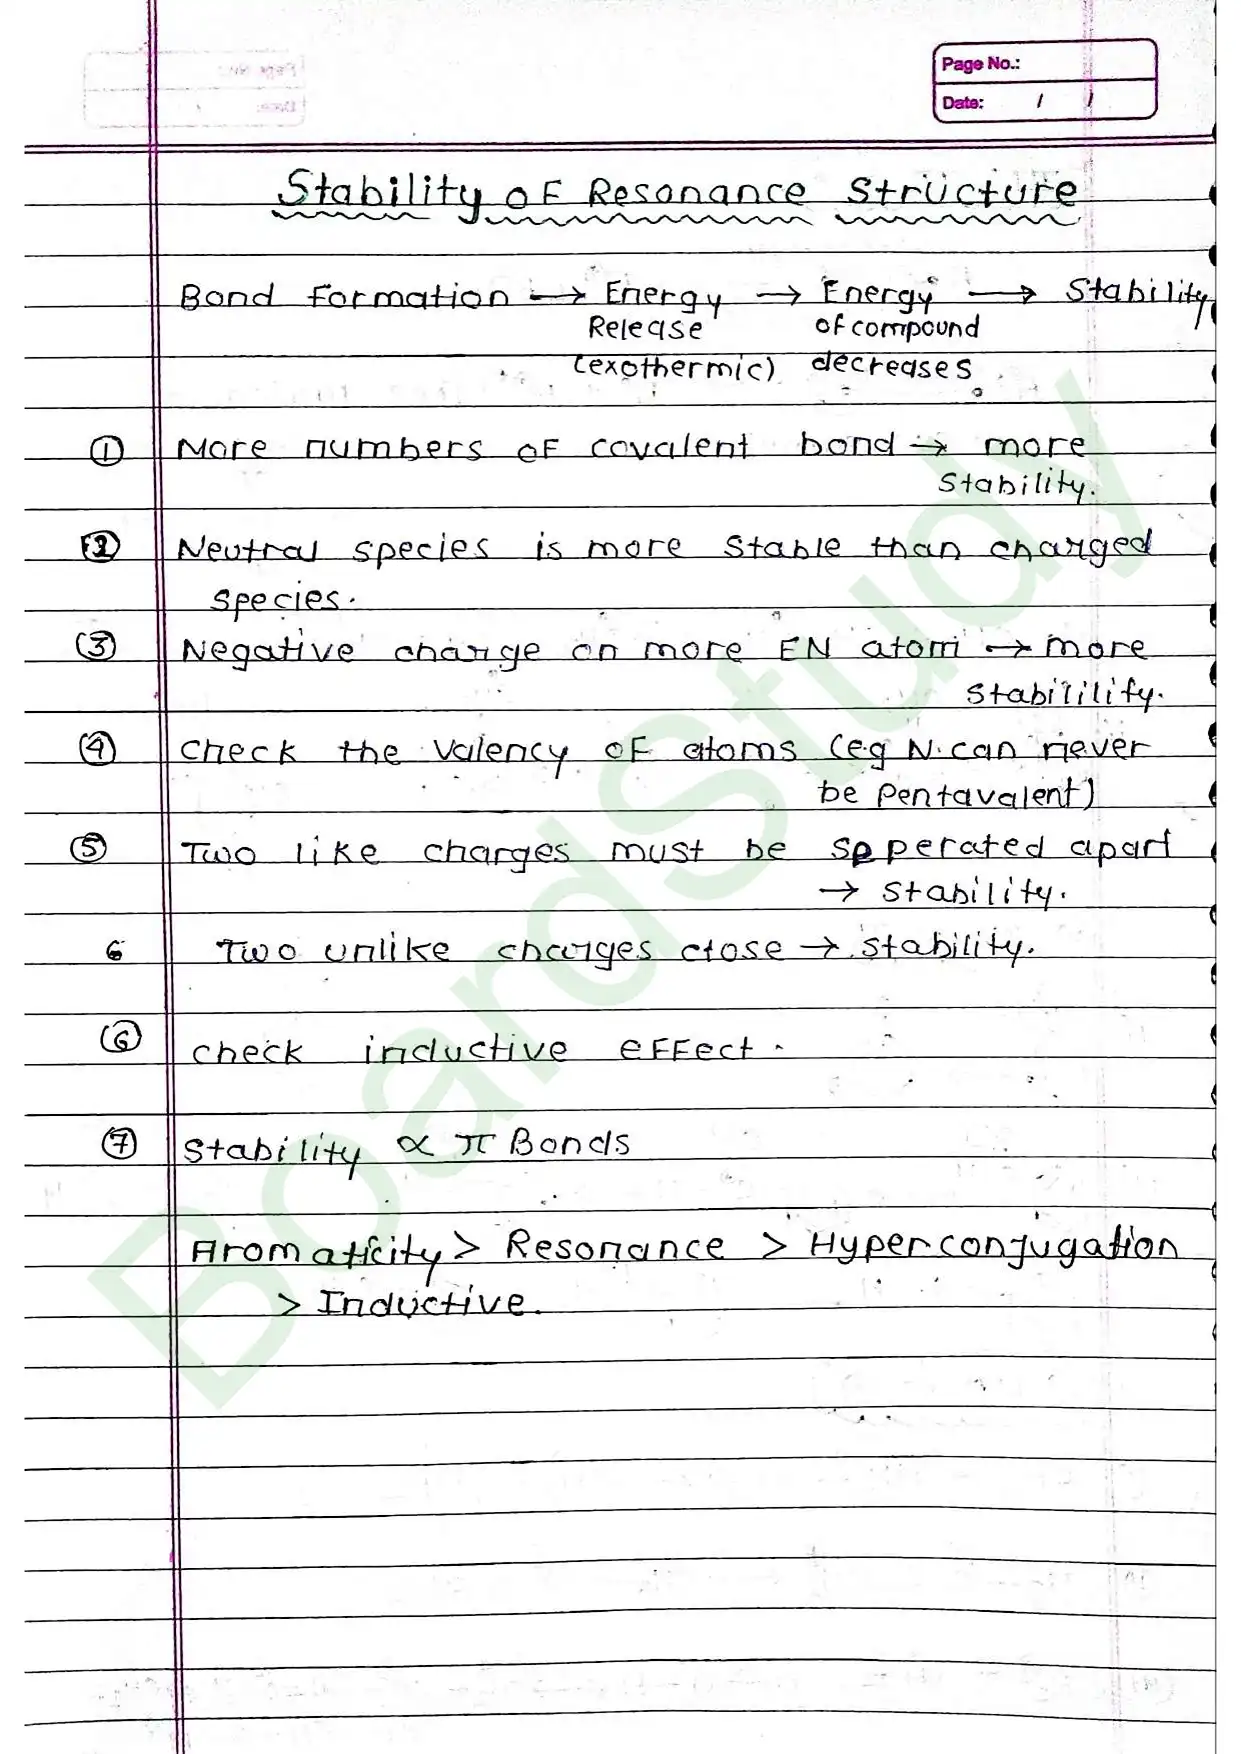 Page No.:
Date: / /
Stability of Resonance Structure
Bond formation → Energy → Energy → Stability
Release of compound
(exothermic) decreases
① More numbers of covalent bond → more
Stability.
② Neutral species is more stable than charged
species.
③ Negative charge on more EN atom → more
stabililify.
④ check the valency of atoms (e.g N can never
be pentavalent)
⑤ Two like charges must be seperated apart
→ stability.
6 Two unlike charges close → stability.
⑥ check inductive effect.
⑦ stability ∝ π Bonds
Aromaticity > Resonance > Hyperconjugation
> Inductive.
BoardStudy